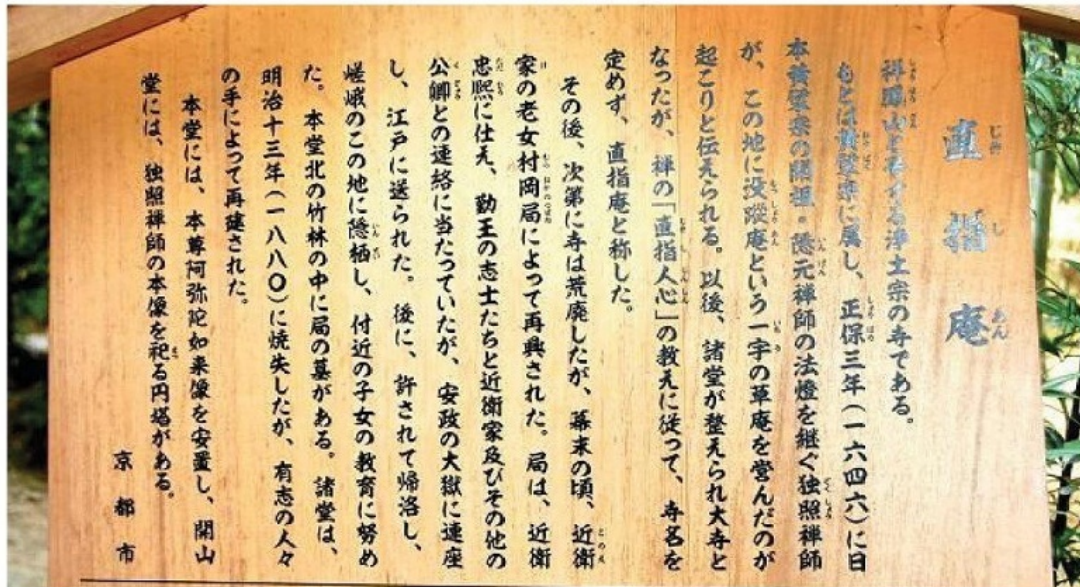 直指庵
祥鳳山と号する浄土宗の寺である。
もとは黄檗宗に属し、正保三年(一六四六)に日
本黄檗宗の開祖・隠元禅師の法燈を継ぐ独照禅師
が、この地に没蹤庵という一宇の草庵を営んだのが
起こりと伝えられる。以後、諸堂が整えられ大寺と
なったが、禅の「直指人心」の教えに従って、寺名を
定めず、直指庵と称した。
その後、次第に寺は荒廃したが、幕末の頃、近衛
家の老女村岡局によって再興された。局は、近衛
忠煕に仕え、勤王の志士たちと近衛家及びその他の
公卿との連絡に当たっていたが、安政の大獄に連座
し、江戸に送られた。後に、許されて帰洛し、
嵯峨のこの地に隠栖し、付近の子女の教育に努め
た。本堂北の竹林の中に局の墓がある。諸堂は、
明治十三年(一八八〇)に焼失したが、有志の人々
の手によって再建された。
本堂には、本尊阿弥陀如来像を安置し、開山
堂には、独照禅師の本像を祀る円塔がある。
京都市